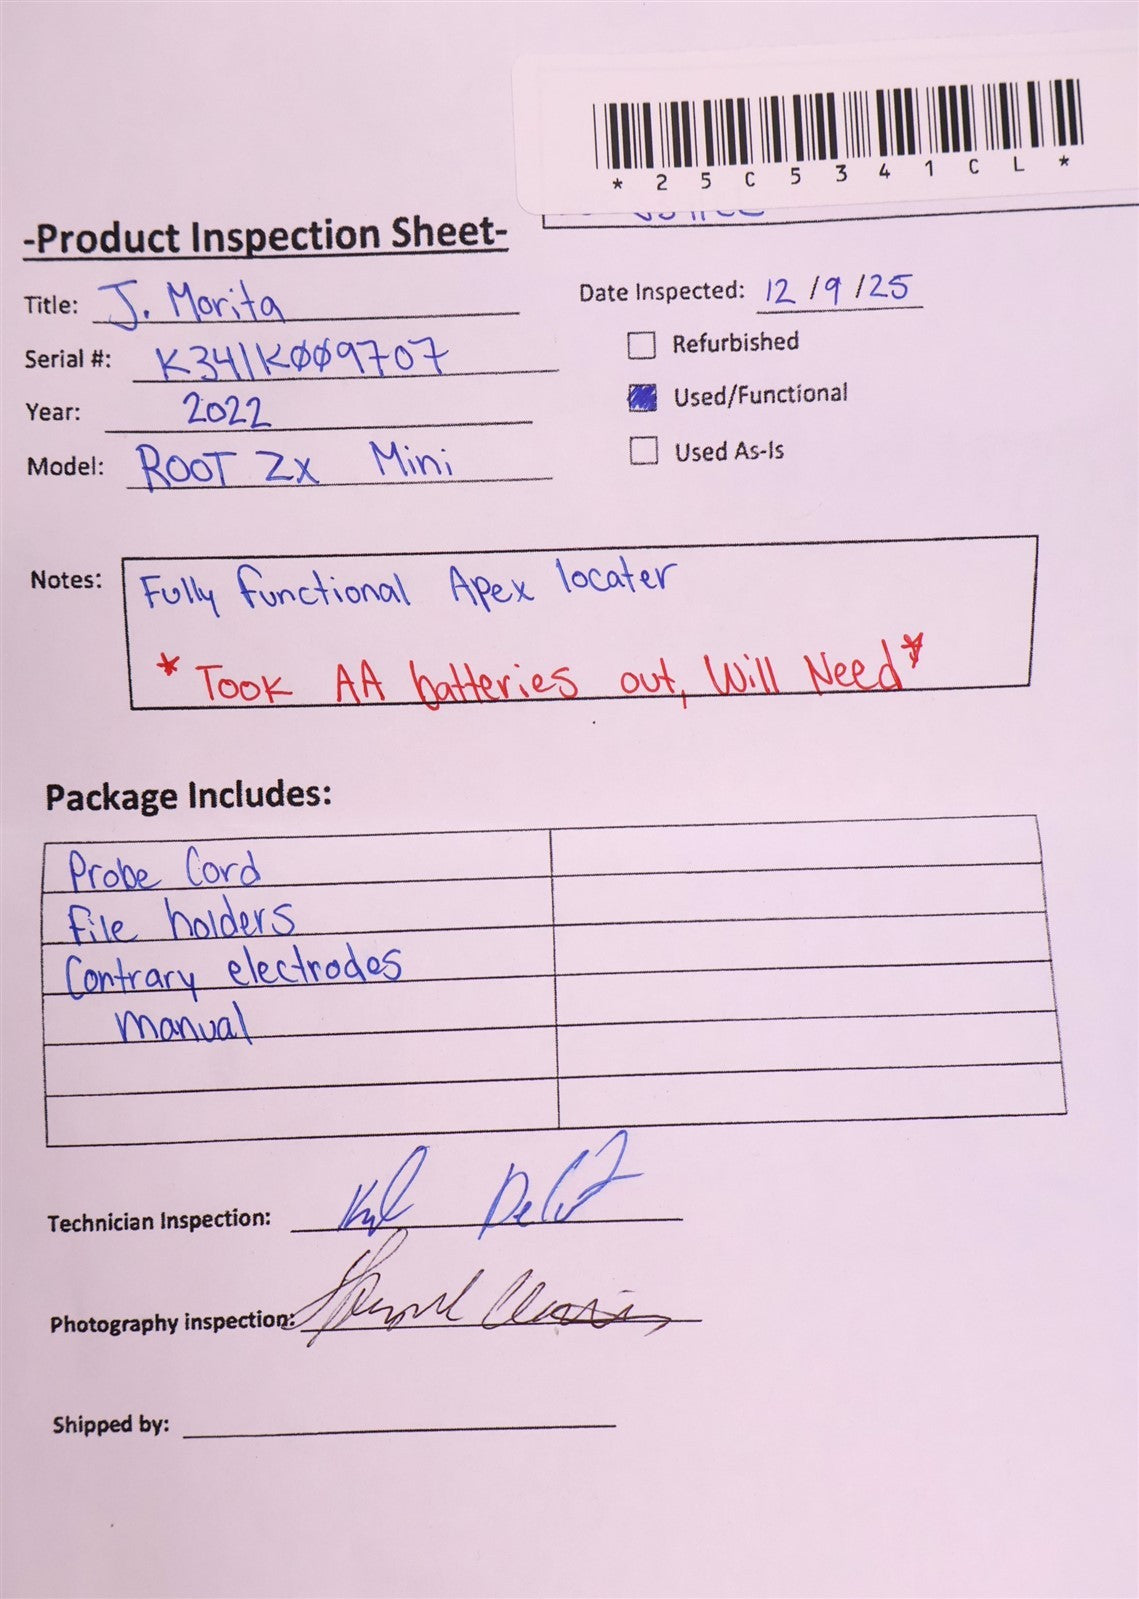 * 2 5 C 5 3 4 1 C L *
-Product Inspection Sheet-
Title: J. Morita
Date Inspected: 12 / 9 / 25
Serial #: K341K009707
Refurbished
Year: 2022
Used/Functional
Model: ROOT ZX Mini
Used As-Is
Notes: Fully functional Apex locater
* Took AA batteries out, Will Need *
Package Includes:
Probe Cord
File holders
Contrary electrodes
manual
Technician Inspection:
Photography inspection:
Shipped by: